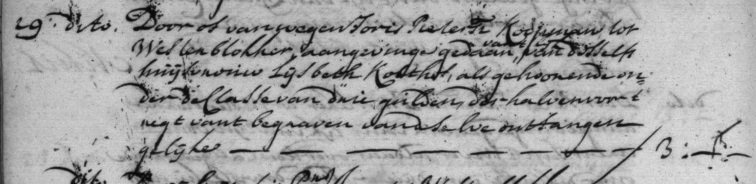 29 dito. Door of van wegen Joris Pieterse Koopman tot
Westerblokker, aangevinge gedaan van desselfs
huijsvrouw Lijsbeth Koothof, als gehoorende on=
der de Classe van drie guldens, dus halven voor 't
regt van 't begraven van deselve ontfangen
gelijke — — — — — — — 3 : — : —
dito